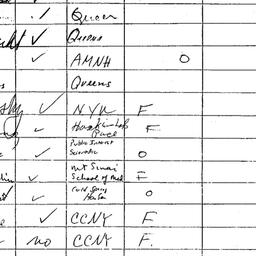 ✓ Queen
✓ Queens
✓ AMNH O
Queens
✓ NYU F
✓ F
✓ Public Interest
Scientific O
✓ Mt Sinai
School of Med F
✓ Cold Spring
Harbor O
✓ CCNY F
no CCNY F.